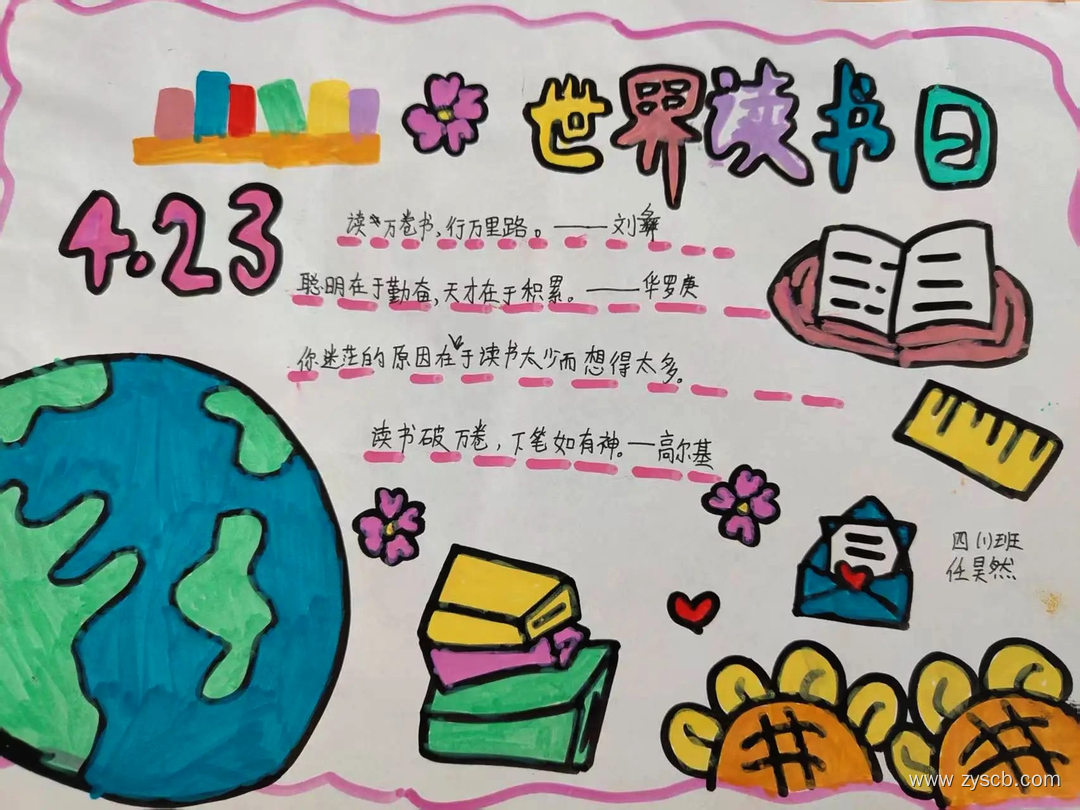 世界读书日
4.23
读万卷书,行万里路。——刘彝
聪明在于勤奋,天才在于积累。——华罗庚
你迷茫的原因在于读书太少而想得太多。
读书破万卷,下笔如有神。—高尔基
四川班
任昊然
www.zyscb.com